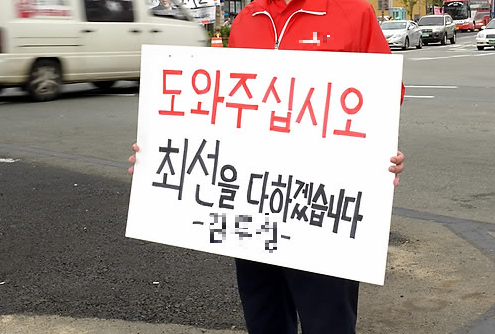 도와주십시오
최선을 다하겠습니다